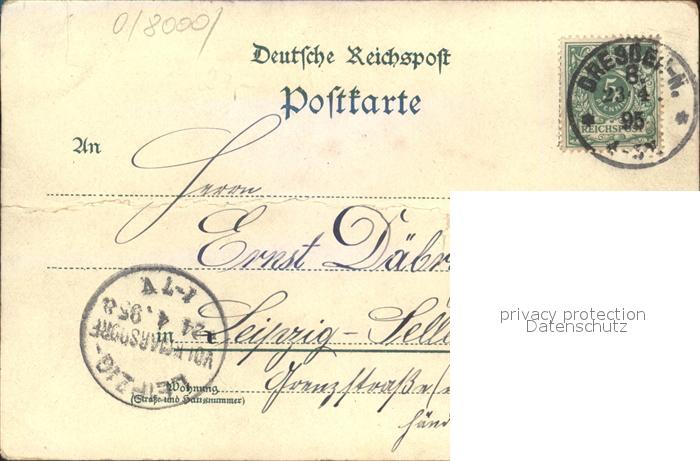 0/8000/
Deutsche Reichspost
Postkarte
DRESDEN-N.
8
23 4
95
5
PFENNIG
REICHSPOST
An
Herrn
Ernst Däbr
in Leipzig - Selle
Grenzstraße
Wohnung
(Straße und Hausnummer)
LEIPZIG-
VOLKMARSDORF
24.4.95 8
1-7V
privacy protection
Datenschutz